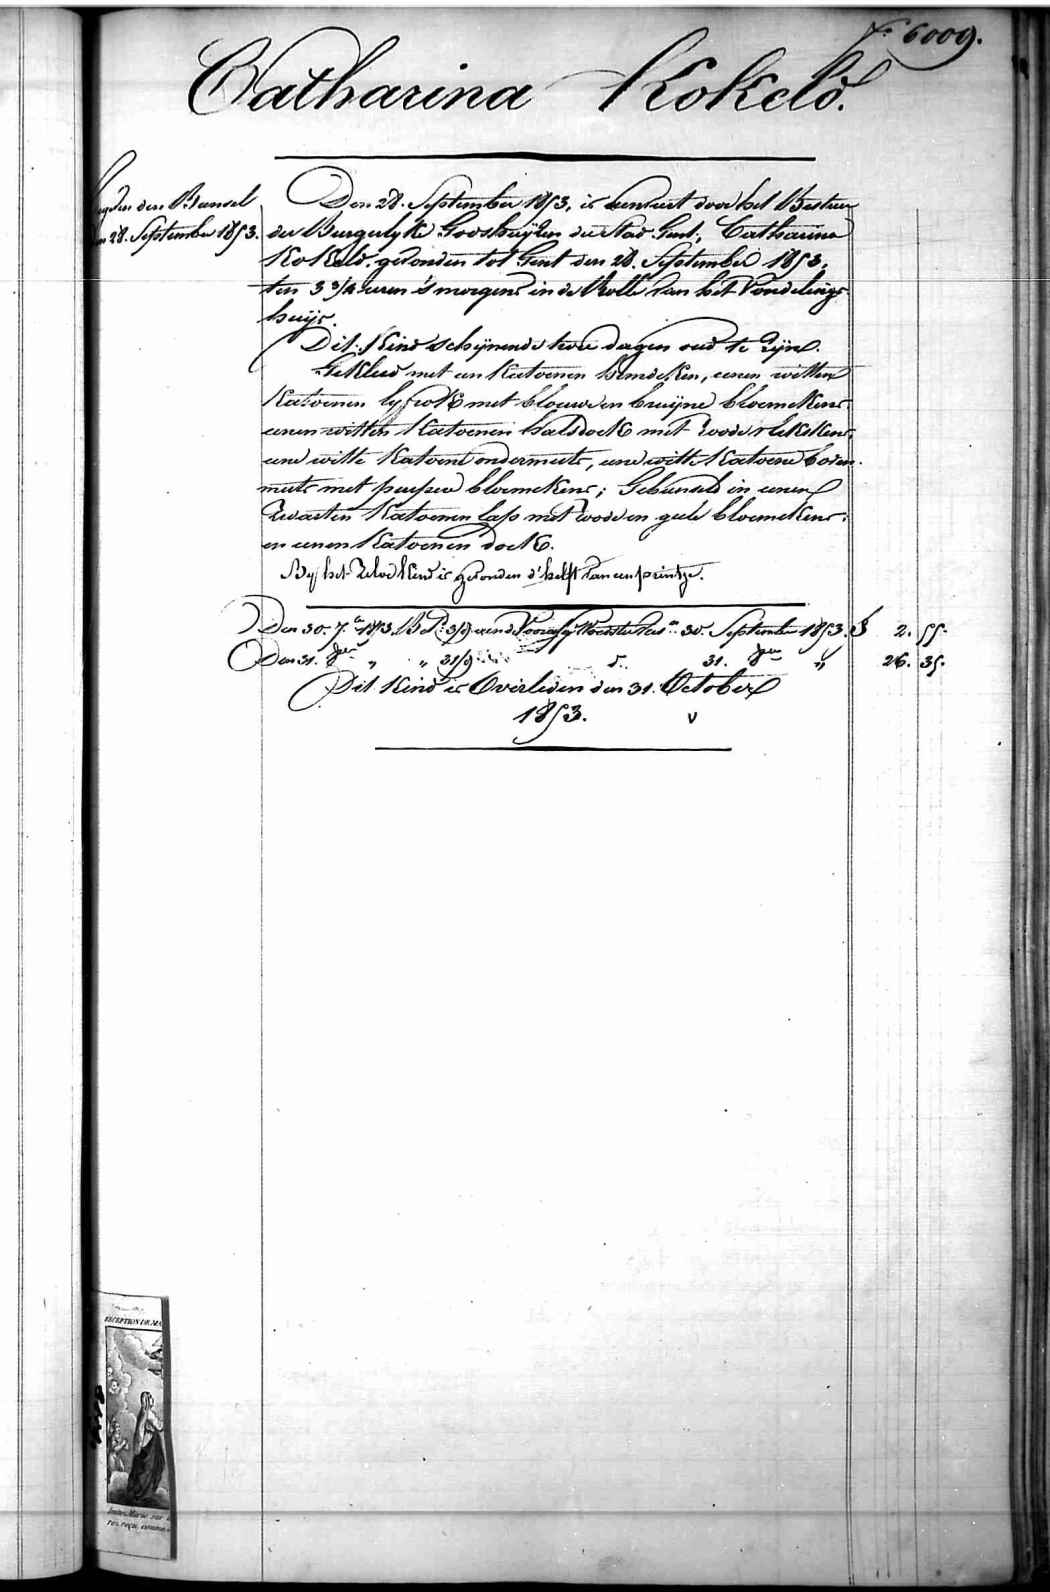 N.º 6009.
Catharina Kokelo.
den Bundel
28. September 1853.
Den 28. September 1853, is aenveert door het Bestier
der Burgerlyke Godshuyzen der Stad Gent, Catharina
Kokelo, gevonden tot Gent den 28. September 1853,
ten 3 3/4 uren 's morgens in de Rolle van het Vondelings-
huijs.
Dit Kind schynende twee dagen oud te zyn.
Gekleed met een Katoenen hemdeken, eenen witten
Katoenen lyfrok met blouwe en bruijne bloemekens,
eenen witten Katoenen halsdoek met roode blekskens,
eene witte Katoene ondermuts, eene witte Katoene boven-
muts met purper bloemekens; Gebunseld in eenen
Zwarten Katoenen lap met roode en geele bloemekens,
en eenen Katoenen doek.
By het Zelve Kind is gevonden d'helft van een printje.
Den 30. 7.bre 1853, 30. September 1853. 2. 55.
Den 31. " " 31/9 d.º 31. " 26. 35.
Dit Kind is Overleden den 31. October
1853. v
CEPTION DE MA